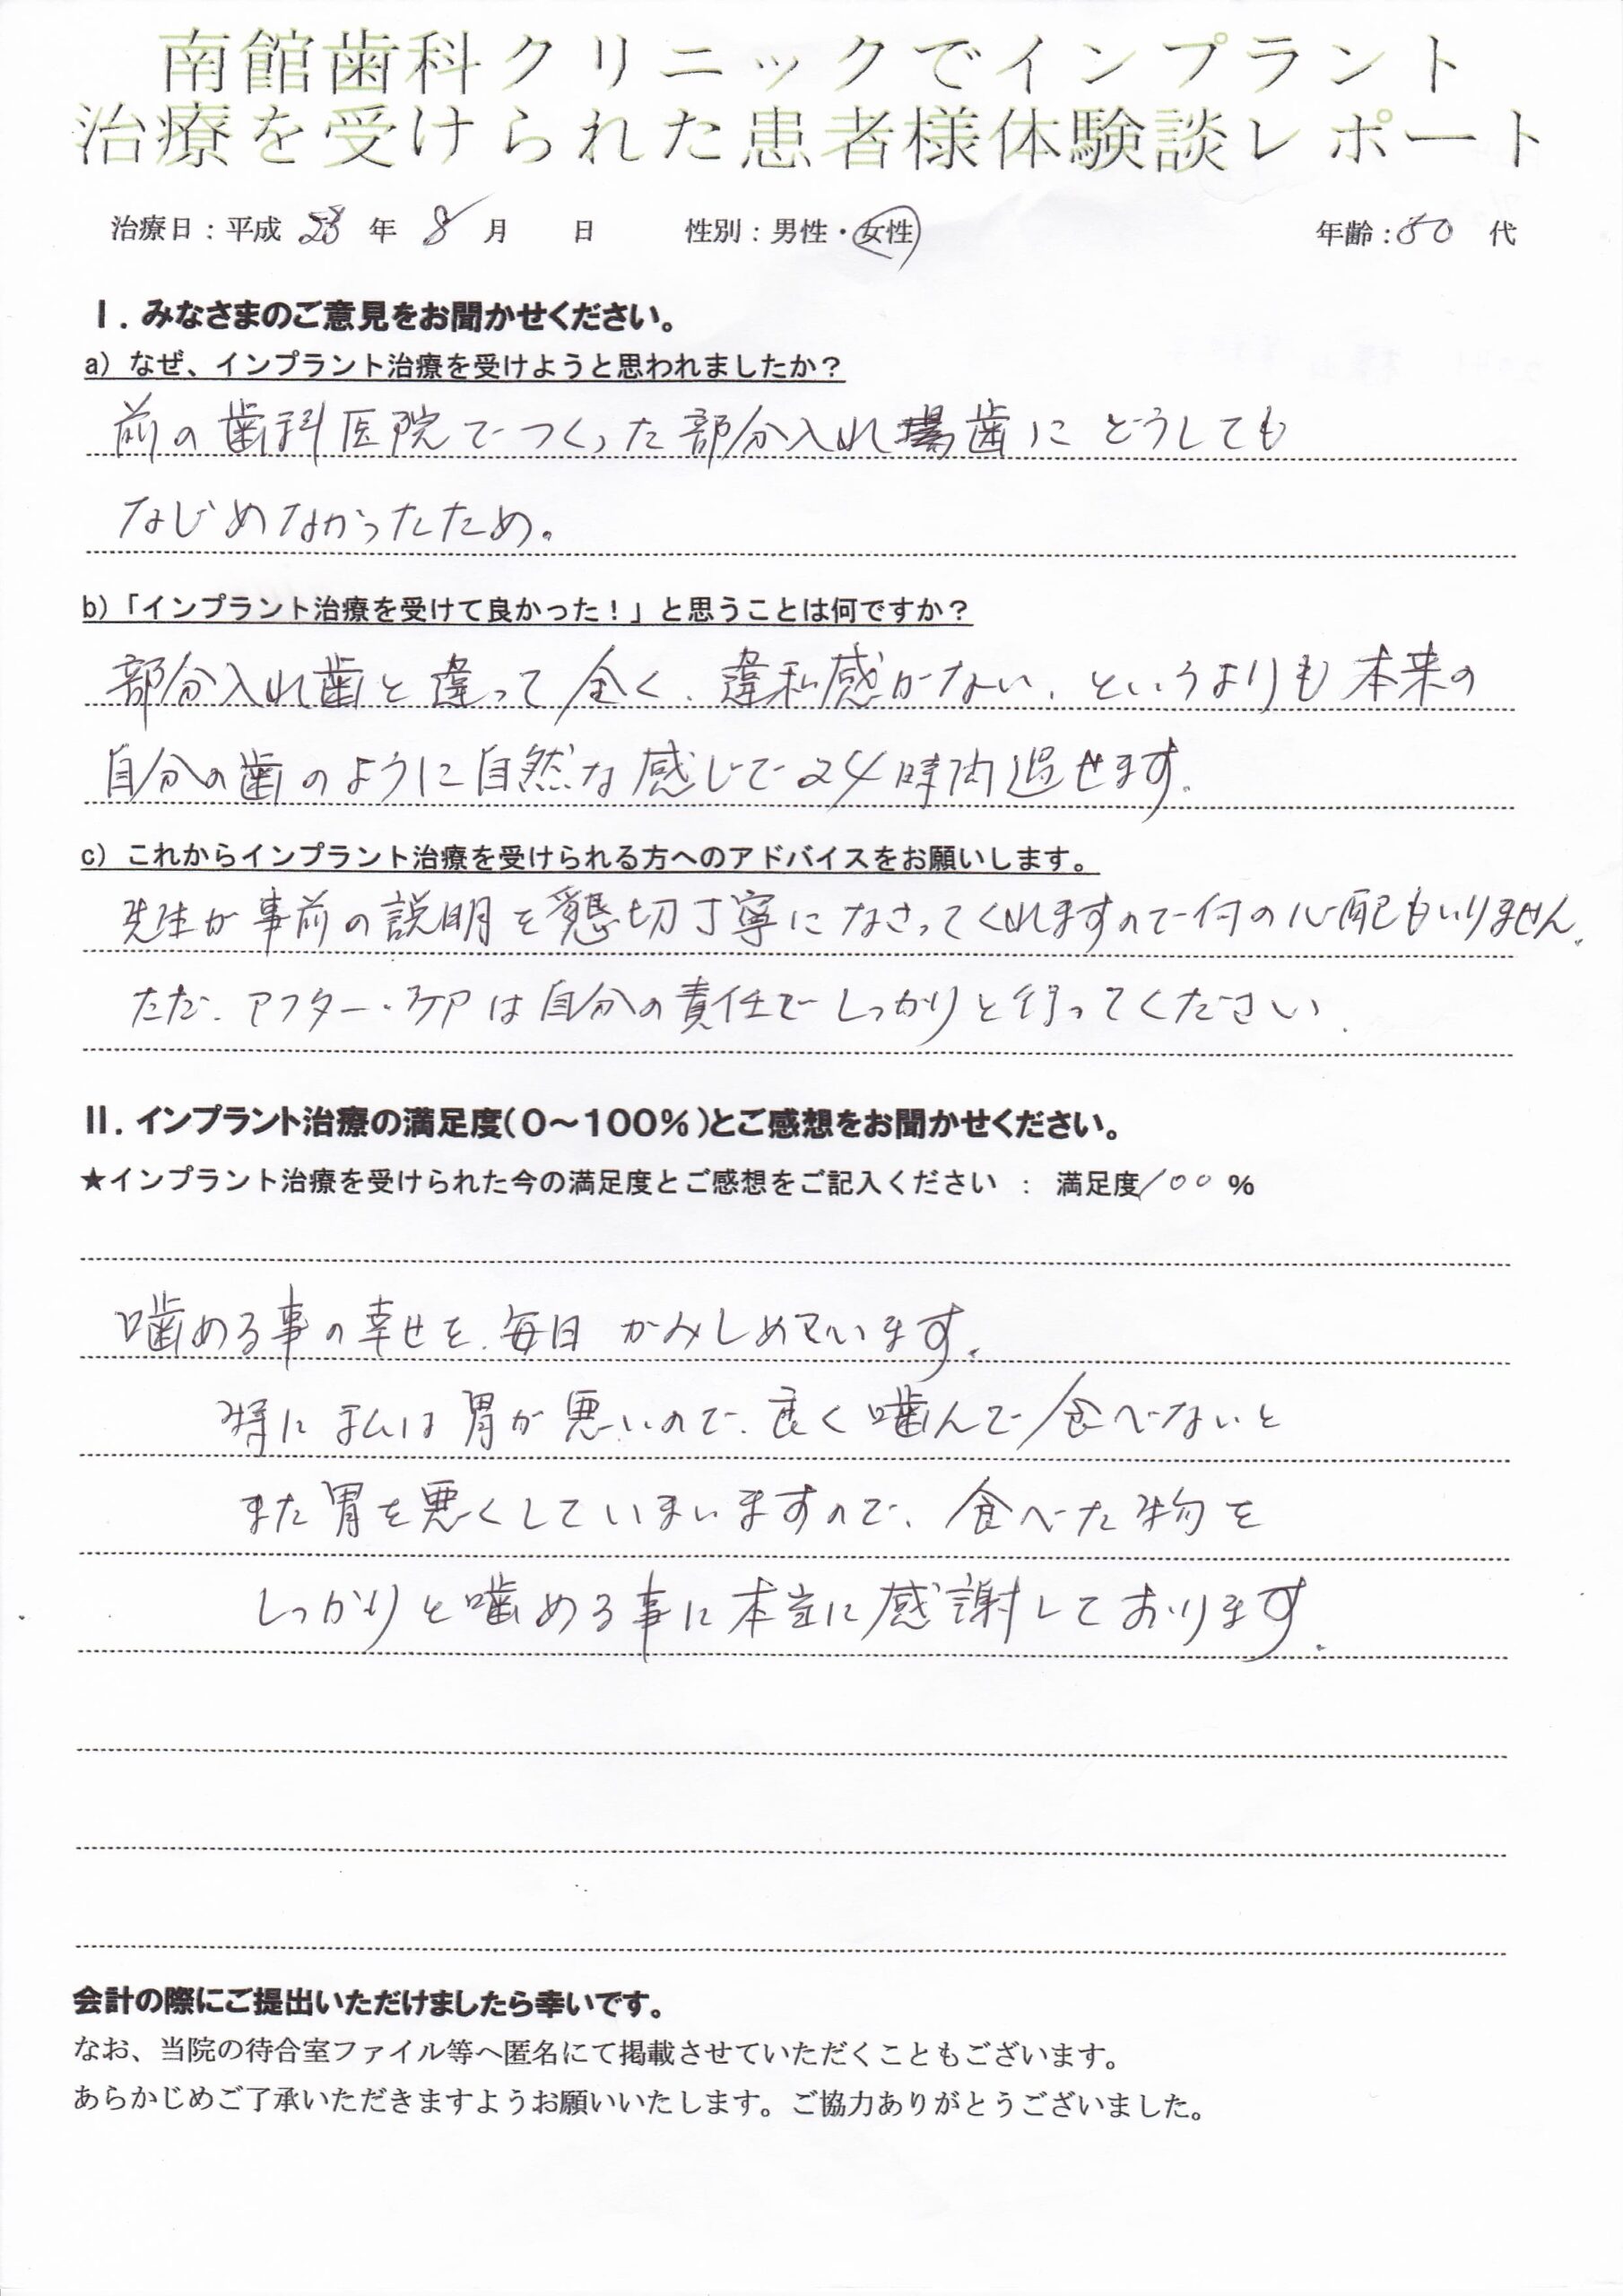 南館歯科クリニックでインプラント
治療を受けられた患者様体験談レポート
治療日：平成 23 年 8 月 日 性別：男性・女性 年齢：50 代
Ⅰ．みなさまのご意見をお聞かせください。
a）なぜ、インプラント治療を受けようと思われましたか？
前の歯科医院でつくった部分入れ歯にどうしても
なじめなかったため。
b）「インプラント治療を受けて良かった！」と思うことは何ですか？
部分入れ歯と違って全く、違和感がない、というよりも本来の
自分の歯のように自然な感じで24時間過せます。
c）これからインプラント治療を受けられる方へのアドバイスをお願いします。
先生が事前の説明を懇切丁寧になさってくれますので何の心配もいりません。
ただ、アフター・ケアは自分の責任でしっかりと行ってください。
Ⅱ．インプラント治療の満足度（0～100％）とご感想をお聞かせください。
★インプラント治療を受けられた今の満足度とご感想をご記入ください ： 満足度100％
噛める事の幸せを、毎日かみしめています。
特に私は胃が悪いので、良く噛んで食べないと
また胃を悪くしていまいますので、食べた物を
しっかりと噛める事に本当に感謝しております。
会計の際にご提出いただけましたら幸いです。
なお、当院の待合室ファイル等へ匿名にて掲載させていただくこともございます。
あらかじめご了承いただきますようお願いいたします。ご協力ありがとうございました。